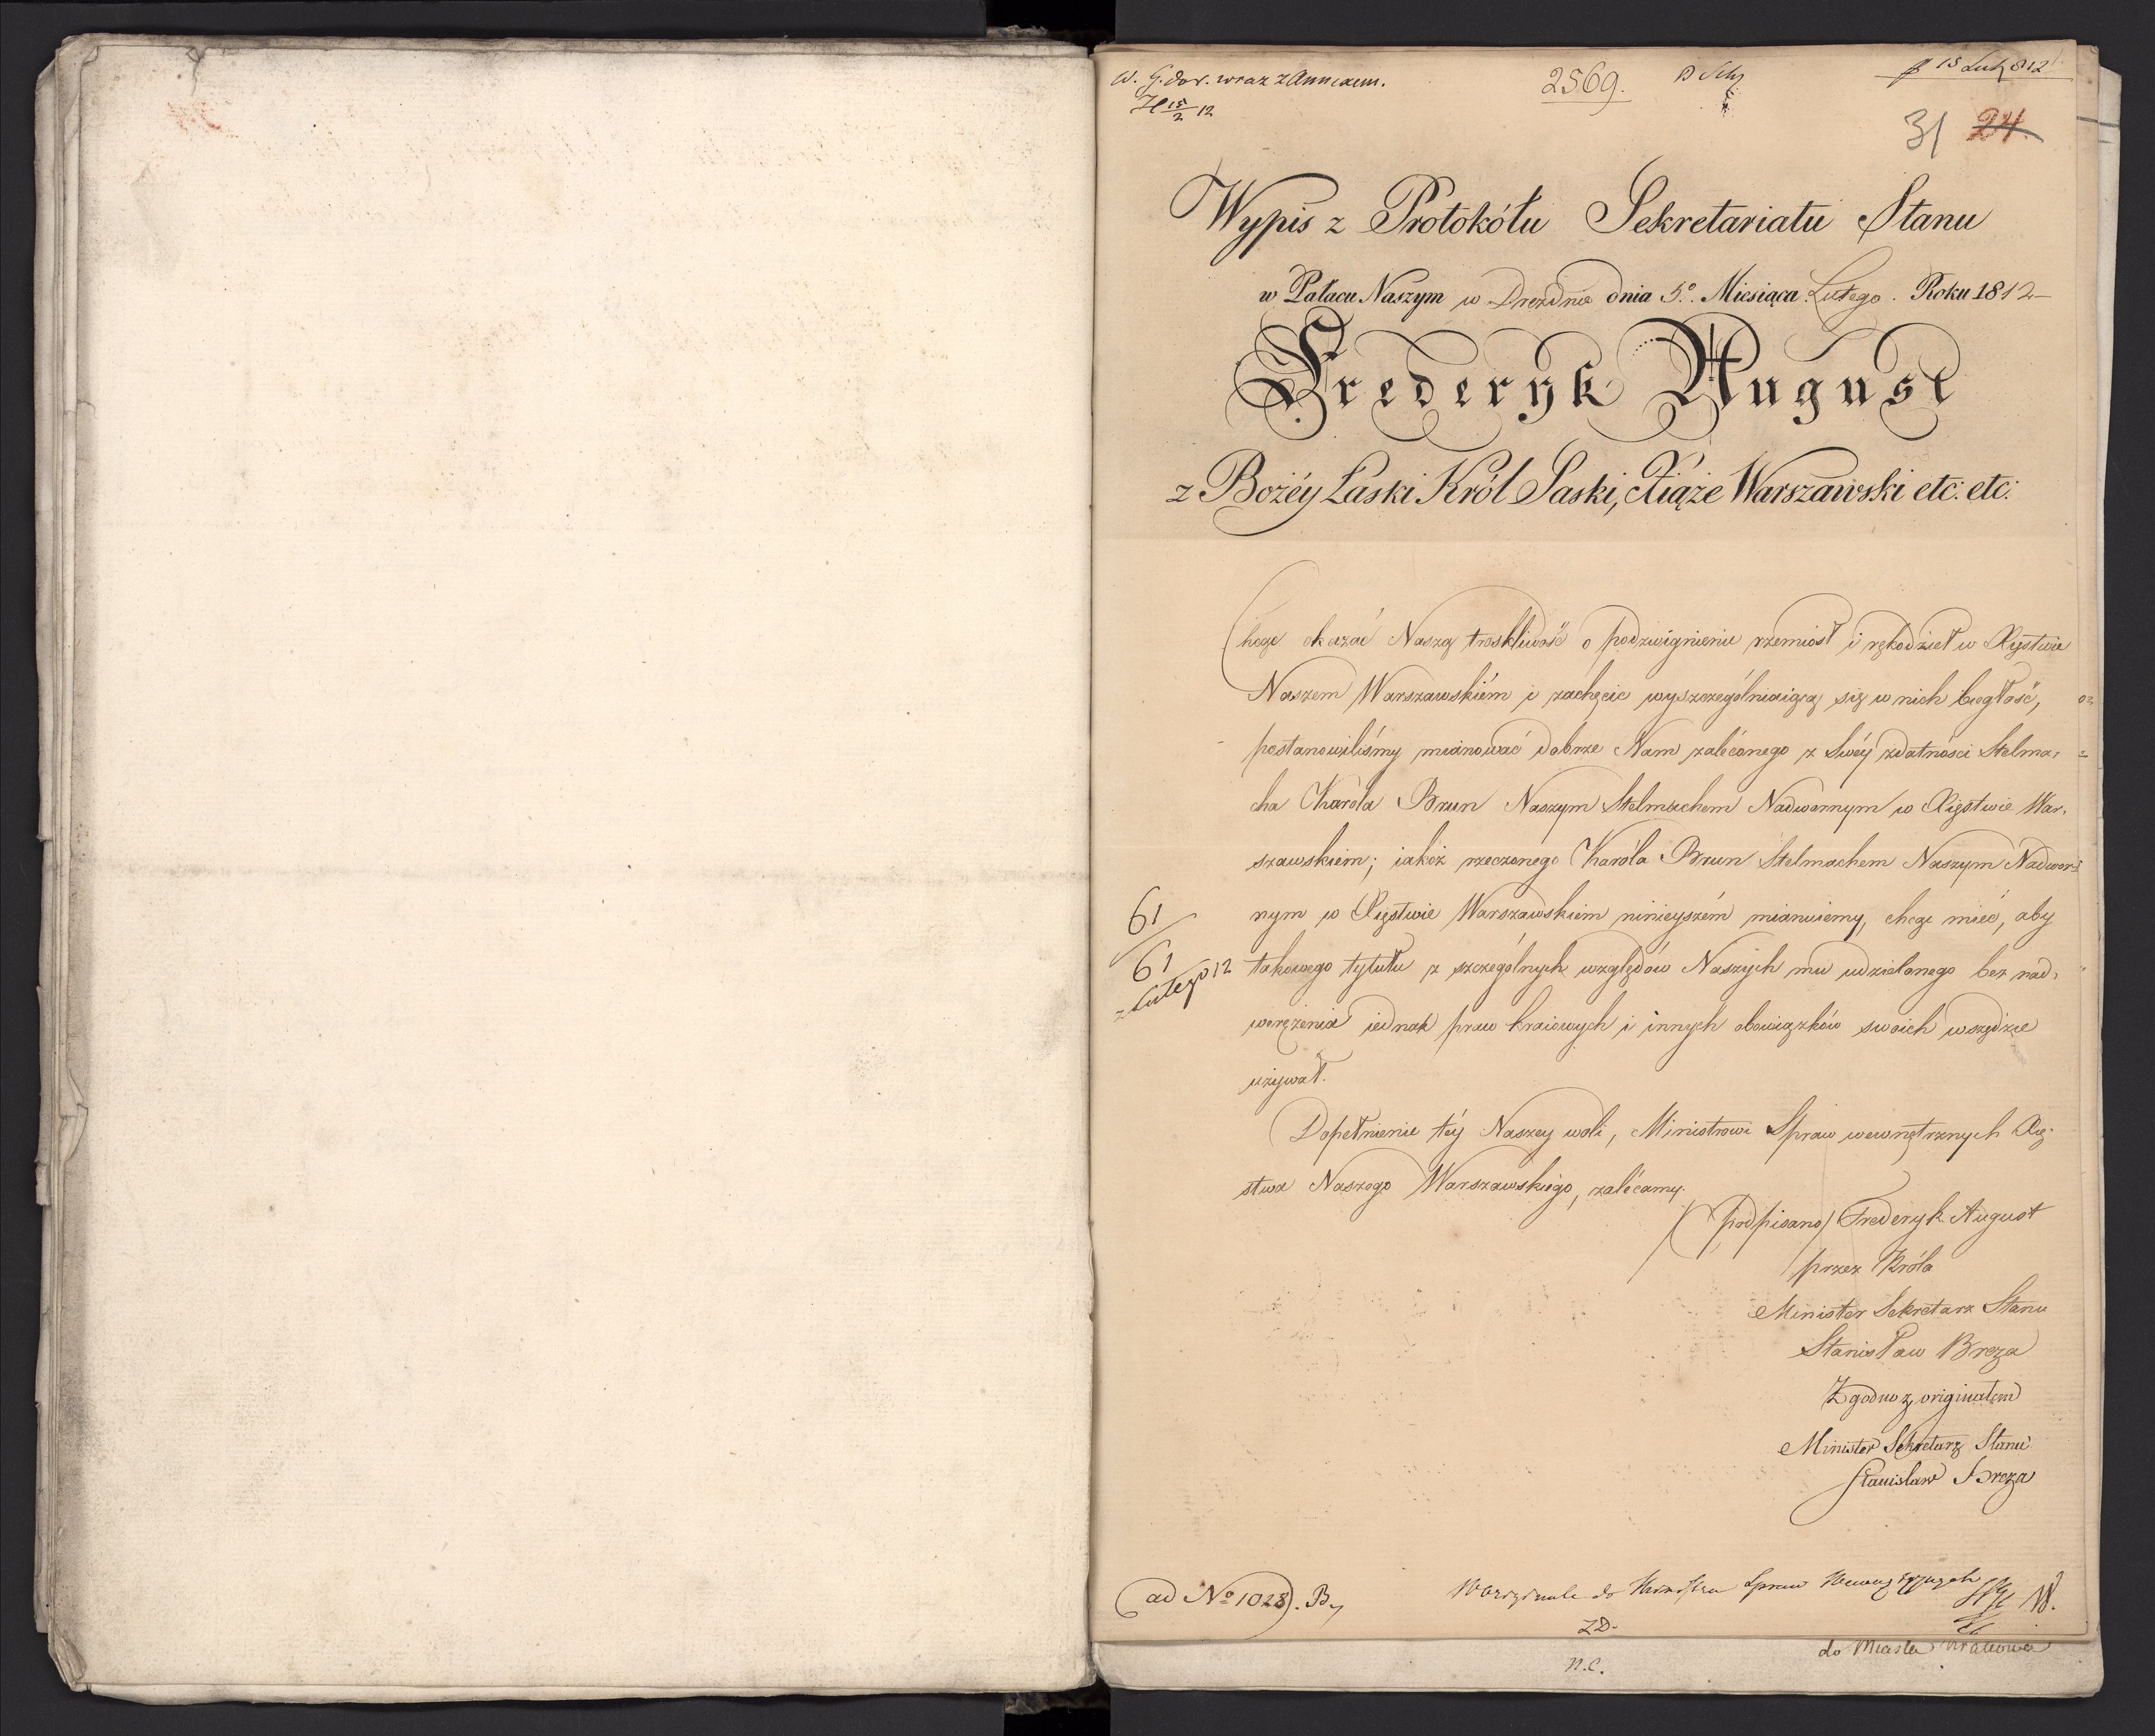 w. G. dor. wraz z Annexem.
15/2 12
2569.
15 Lut 812
31 24.
Wypis z Protokółu Sekretariatu Stanu
w Pałacu Naszym w Dreznie dnia 5.º Miesiąca Lutego. Roku 1812
Frederyk August
z Bożéy Łaski Król Saski, Xiąże Warszawski etc: etc:
Chcąc okazać Naszą troskliwość o podzwignienie rzemiosł i rękodzieł w Xięstwie
Naszem Warszawskiém i zachęcić wyszczególniaiącą się w nich biegłość,
postanowiliśmy mianować dobrze Nam zaleconego z Swéy zdatności Stelma-
cha Karola Brun Naszym Stelmachem Nadwornym w Xięstwie War-
szawskiem; iakoż rzeczonego Karola Brun Stelmachem Naszym Nadwor-
nym w Xięstwie Warszawskiem ninieyszém mianuiemy, chcąc mieć, aby
takowego tytułu z szczególnych względów Naszych mu udzielonego bez nad-
werężenia iednak praw kraiowych i innych obowiązków swoich wszędzie
używał.
Dopełnienie téy Naszey woli, Ministrowi Spraw wewnętrznych Xię-
stwa Naszego Warszawskiego, zalecamy.
(podpisano) Frederyk August
przez Króla
Minister Sekretarz Stanu
Stanisław Breza
Zgodno z originałem
Minister Sekretarz Stanu
Stanisław Breza
61
61
z Lutego 12
(ad Nº 1028). B.
W originale do Ministra Spraw Wewnętrznych
W.
ZD.
do Miasta Krakowa
n.c.